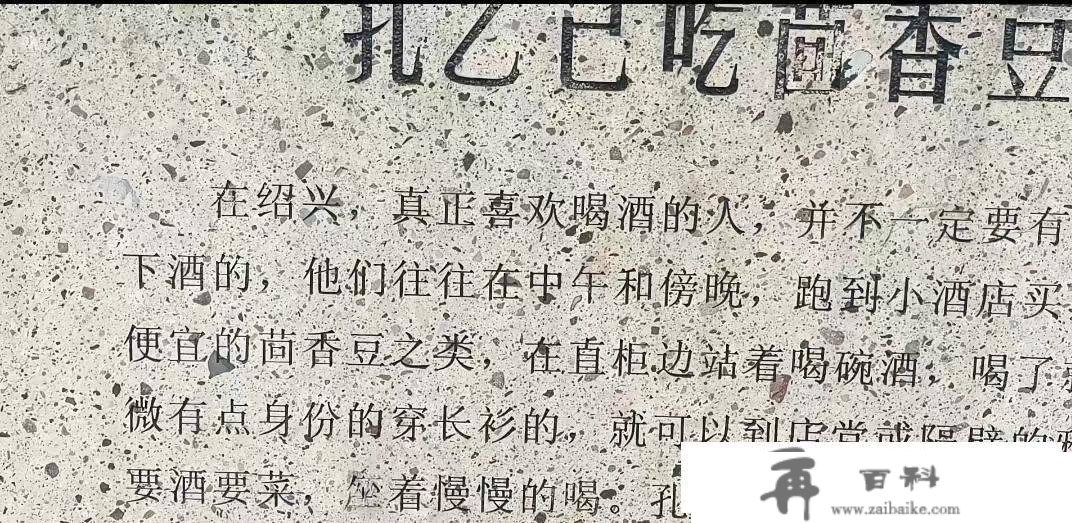 孔乙己吃茴香豆
在绍兴，真正喜欢喝酒的人，并不一定要有
下酒的，他们往往在中午和傍晚，跑到小酒店买
便宜的茴香豆之类，在直柜边站着喝碗酒，喝了
微有点身份的穿长衫的，就可以到店堂或隔壁的
要酒要菜，坐着慢慢的喝。孔
再 百科
www.zaibaike.com